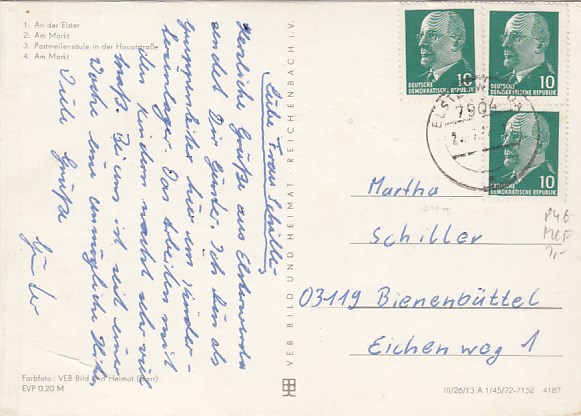 1. An der Elster
2. Am Markt
3. Postmeilensäule in der Hauptstraße
4. Am Markt
Liebe Frau Schiller,
Herzliche Grüße aus Elsterwerda
sendet Die Günter. Ich bin als
Gruppenleiter hier im Kinder-
ferienlager. Das Arbeiten mit
den Kindern macht sehr viel
Spaß. Bei uns ist seit einer
Woche eine unmögliche Hitze.
Viele Grüße
Günter
VEB BILD UND HEIMAT · REICHENBACH i. V.
DEUTSCHE
DEMOKRATISCHE REPUBLIK
10
DEUTSCHE
DEMOKRATISCHE REPUBLIK
10
DEMOKRATISCHE REPUBLIK
10
7904
Martha
Schiller
03119 Bienenbüttel
Eichenweg 1
Farbfoto: VEB Bild und Heimat
EVP 0.20 M
III/26/13 A 1/45/72-7152 4187